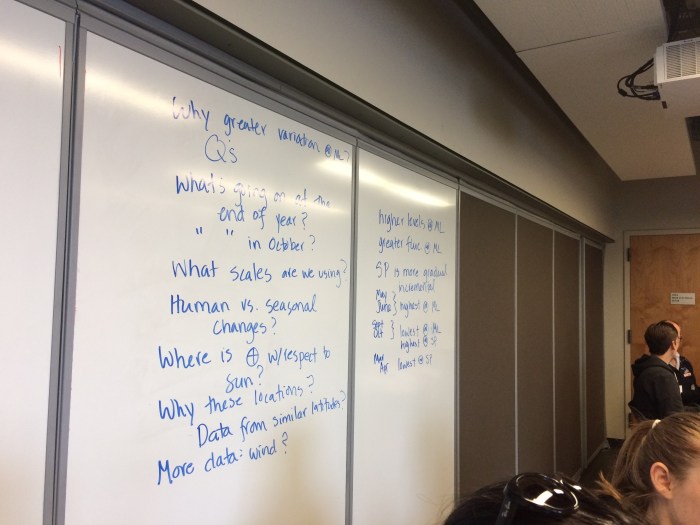 Why greater variation @ ML?
Q's
What's going on at the
end of year?
" " in October?
What scales are we using?
Human vs. seasonal
changes?
Where is ⊕ w/respect to
sun?
Why these locations?
Data from similar latitudes?
More data: wind?
higher levels @ ML
greater fluc @ ML
SP is more gradual
incremental
May
June } highest @ ML
Sept
Oct } lowest @ ML
highest @ SP
Mar
Apr lowest @ SP